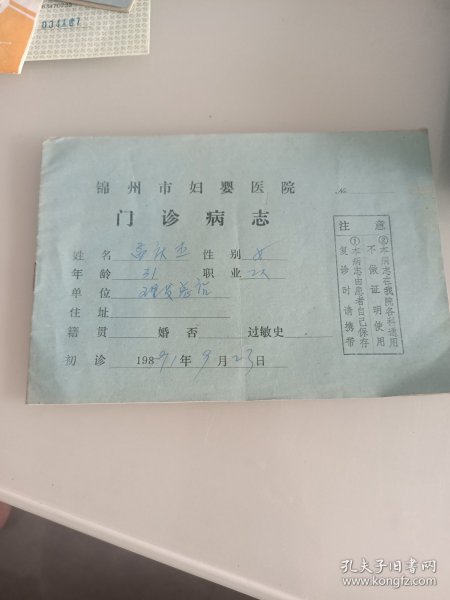 63470235
034187
锦州市妇婴医院
№
门诊病志
姓名 性别 女
年龄 31 职业 工人
单位
住址
籍贯 婚否 过敏史
初诊 1989 91年9月23日
注意
①本病志由患者自己保存
复诊时请携带
②本病志在我院各科通用
不做证明使用
孔夫子旧书网
www.kongfz.com